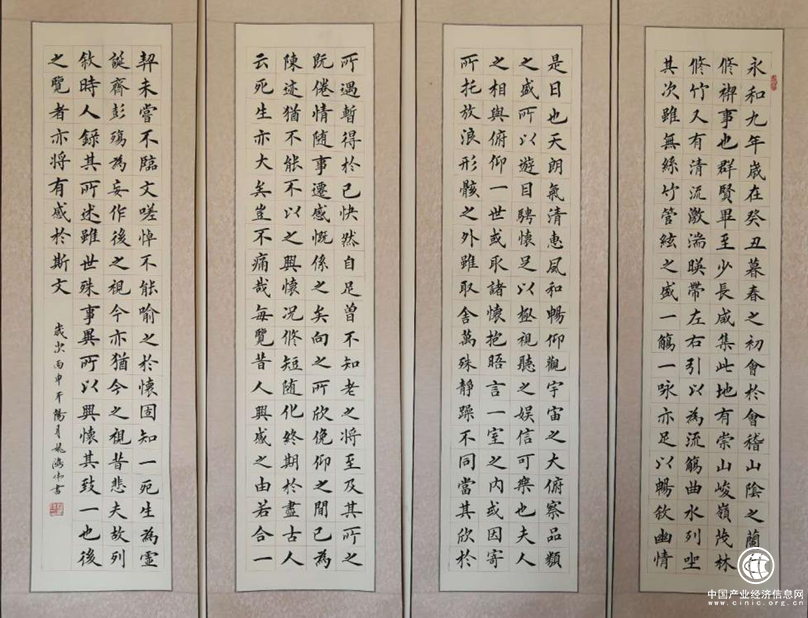 永和九年歲在癸丑暮春之初會於會稽山陰之蘭
脩禊事也群賢畢至少長咸集此地有崇山峻嶺茂林
脩竹又有清流激湍暎帶左右引以為流觴曲水列坐
其次雖無絲竹管絃之盛一觴一詠亦足以暢敘幽情
是日也天朗氣清惠風和暢仰觀宇宙之大俯察品類
之盛所以遊目騁懷足以極視聽之娛信可樂也夫人
之相與俯仰一世或取諸懷抱晤言一室之內或因寄
所托放浪形骸之外雖取舍萬殊靜躁不同當其欣於
所遇暫得於己快然自足曾不知老之將至及其所之
既倦情隨事遷感慨係之矣向之所欣俛仰之間已為
陳迹猶不能不以之興懷況脩短隨化終期於盡古人
云死生亦大矣豈不痛哉每覽昔人興感之由若合一
契未嘗不臨文嗟悼不能喻之於懷固知一死生為虛
誕齊彭殤為妄作後之視今亦猶今之視昔悲夫故列
敘時人錄其所述雖世殊事異所以興懷其致一也後
之覽者亦將有感於斯文
歲次丙申年陽月書
中国产业经济信息网
www.cinic.org.cn